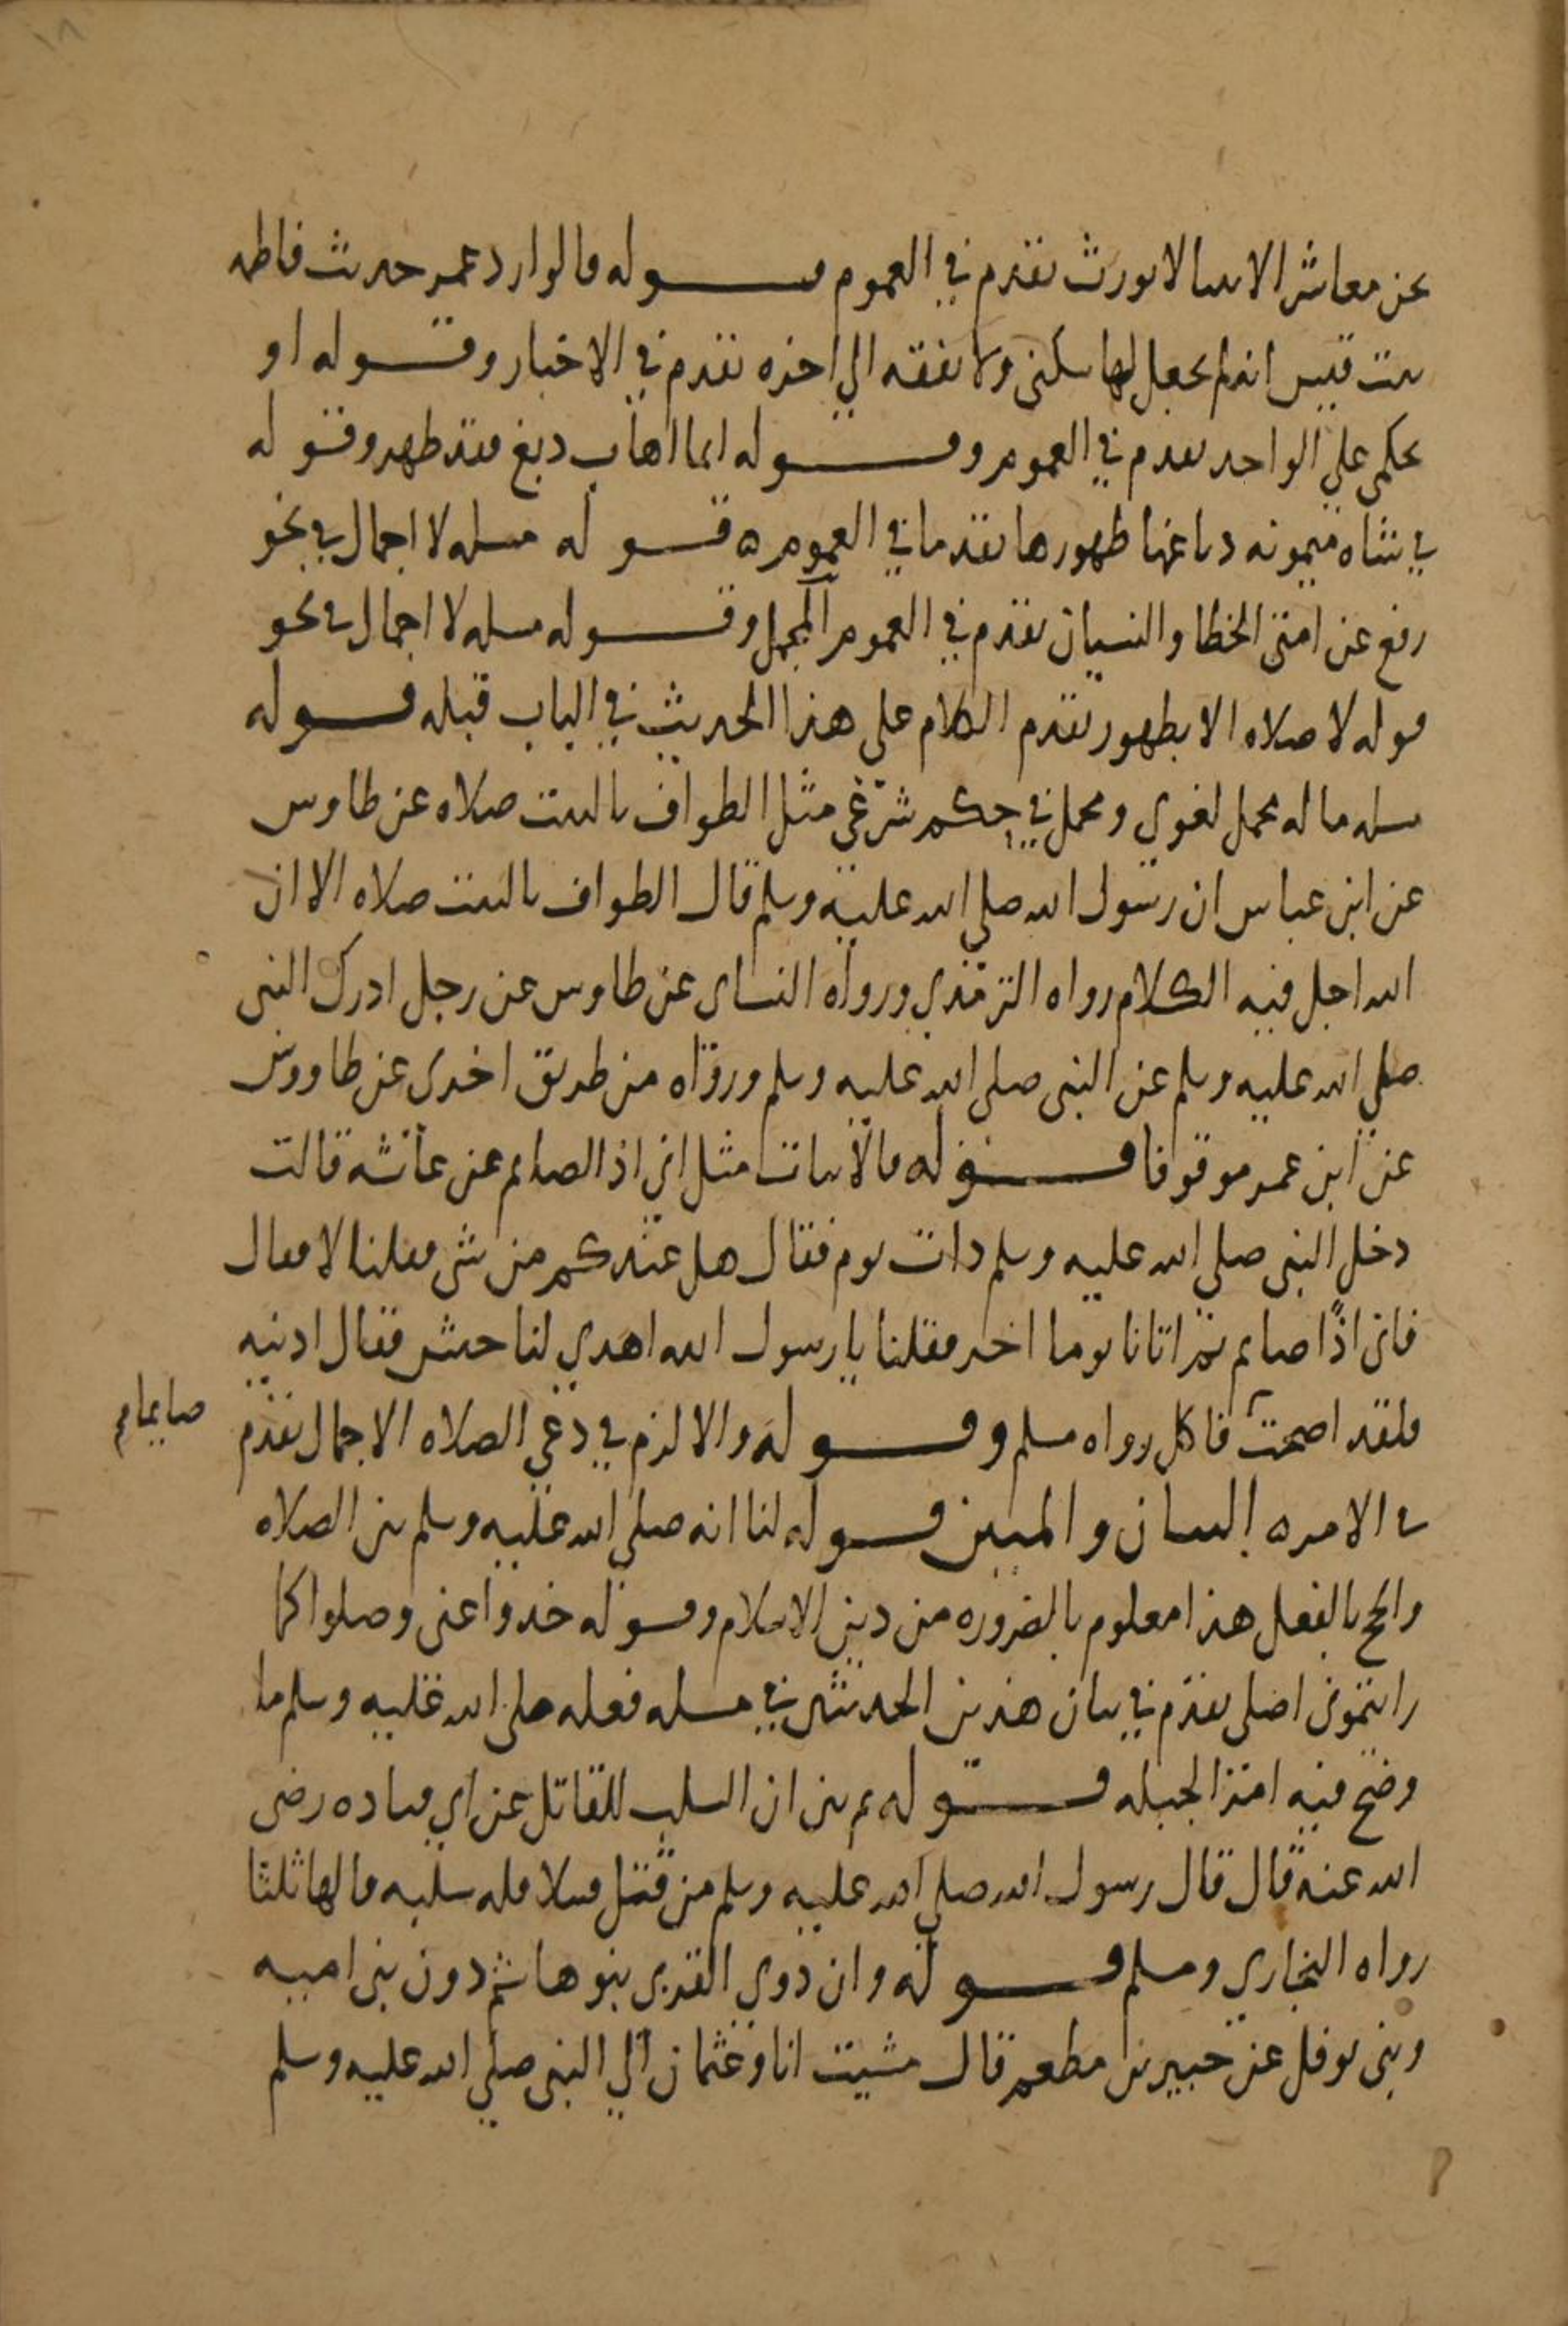 نحن معاشر الانبيا لا نورث تقدم في العموم قوله قالوا رد عمر حديث فاطمه
بنت قيس انه لم يجعل لها سكنى ولا نفقه الي اخره تقدم في الاخبار وقوله او
حكمى علي الواحد تقدم في العموم وقوله ايما اهاب دبغ فقد طهر وقوله
في شاه ميمونه دباغها طهورها تقدما في العموم ه قوله مسله لا اجمال في نحو
رفع عن امتى الخطا والنسيان تقدم في العموم المجمل وقوله مسله لا اجمال في نحو
قوله لا صلاه الا بطهور تقدم الكلام على هذا الحديث في الباب قبله قوله
مسله ما له محمل لغوي ومحمل في حكم شرعي مثل الطواف بالبيت صلاه عن طاوس
عن ابن عباس ان رسول الله صلي الله عليه وسلم قال الطواف بالبيت صلاه الا ان
الله احل فيه الكلام رواه الترمذي ورواه النساى عن طاوس عن رجل ادرك النبى
صلي الله عليه وسلم عن النبى صلى الله عليه وسلم ورواه من طريق اخرى عن طاووس
عن ابن عمر موقوفا قوله فالاثبات مثل اني اذا لصايم عن عائشه قالت
دخل النبى صلى الله عليه وسلم ذات يوم فقال هل عندكم من شى فقلنا لا فقال
فانى اذًا صايم ثم اتانا يوما اخر فقلنا يا رسول الله اهدي لنا حيس فقال ادنيه
فلقد اصبحت فاكل رواه مسلم وقوله والا لزم في دعي الصلاه الاجمال تقدم
صايما م
في الامر ه البيان والمبين قوله لنا انه صلي الله عليه وسلم بين الصلاه
والحج بالفعل هذا معلوم بالضروره من دين الاسلام وقوله خذوا عنى وصلوا كما
رايتمونى اصلى تقدم في بيان هذين الحديثين في مسله فعله صلى الله عليه وسلم ما
وضح فيه امر الجبله قوله ثم بين ان السلب للقاتل عن ابي قتاده رضى
الله عنه قال قال رسول الله صلي الله عليه وسلم من قتل قتيلا فله سلبه قالها ثلثا
رواه البخاري ومسلم قوله وان ذوي القربى بنو هاشم دون بنى اميه
وبنى نوفل عن جبير بن مطعم قال مشيت انا وعثمان الي النبى صلي الله عليه وسلم